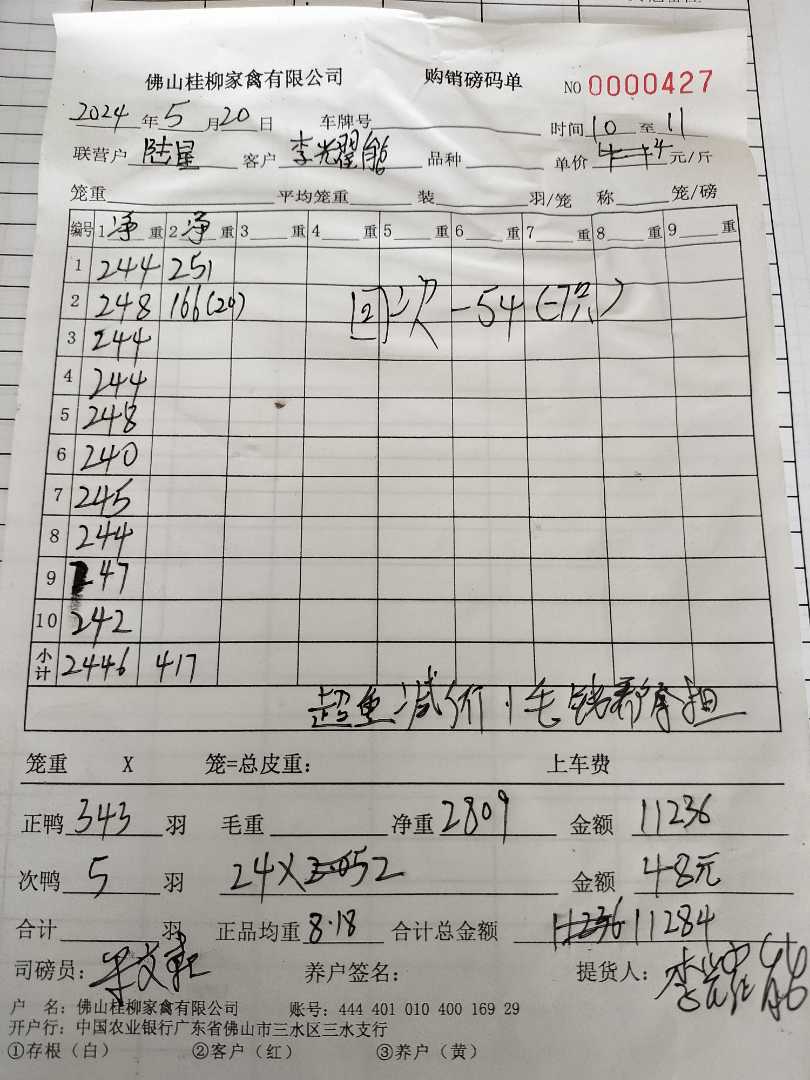 佛山桂柳家禽有限公司 购销磅码单 NO 0000427
2024 年 5 月 20 日 车牌号 时间 10 至 11
联营户 陆星 客户 李光翟能 品种 单价 4 元/斤
笼重 平均笼重 装 羽/笼 称 笼/磅
编号 1 净 重 2 净 重 3 重 4 重 5 重 6 重 7 重 8 重 9 重
1 244 251
2 248 166(20) 回次 -54 (-7只)
3 244
4 244
5 248
6 240
7 245
8 244
9 247
10 242
小计 2446 417
超重减价1毛钱
笼重 X 笼=总皮重: 上车费
正鸭 343 羽 毛重 净重 2809 金额 11236
次鸭 5 羽 24X 2 金额 48元
合计 羽 正品均重 8.18 合计总金额 11236 11284
司磅员: 养户签名: 提货人:
户 名: 佛山桂柳家禽有限公司 账号: 444 401 010 400 169 29
开户行: 中国农业银行广东省佛山市三水区三水支行
①存根(白) ②客户(红) ③养户(黄)